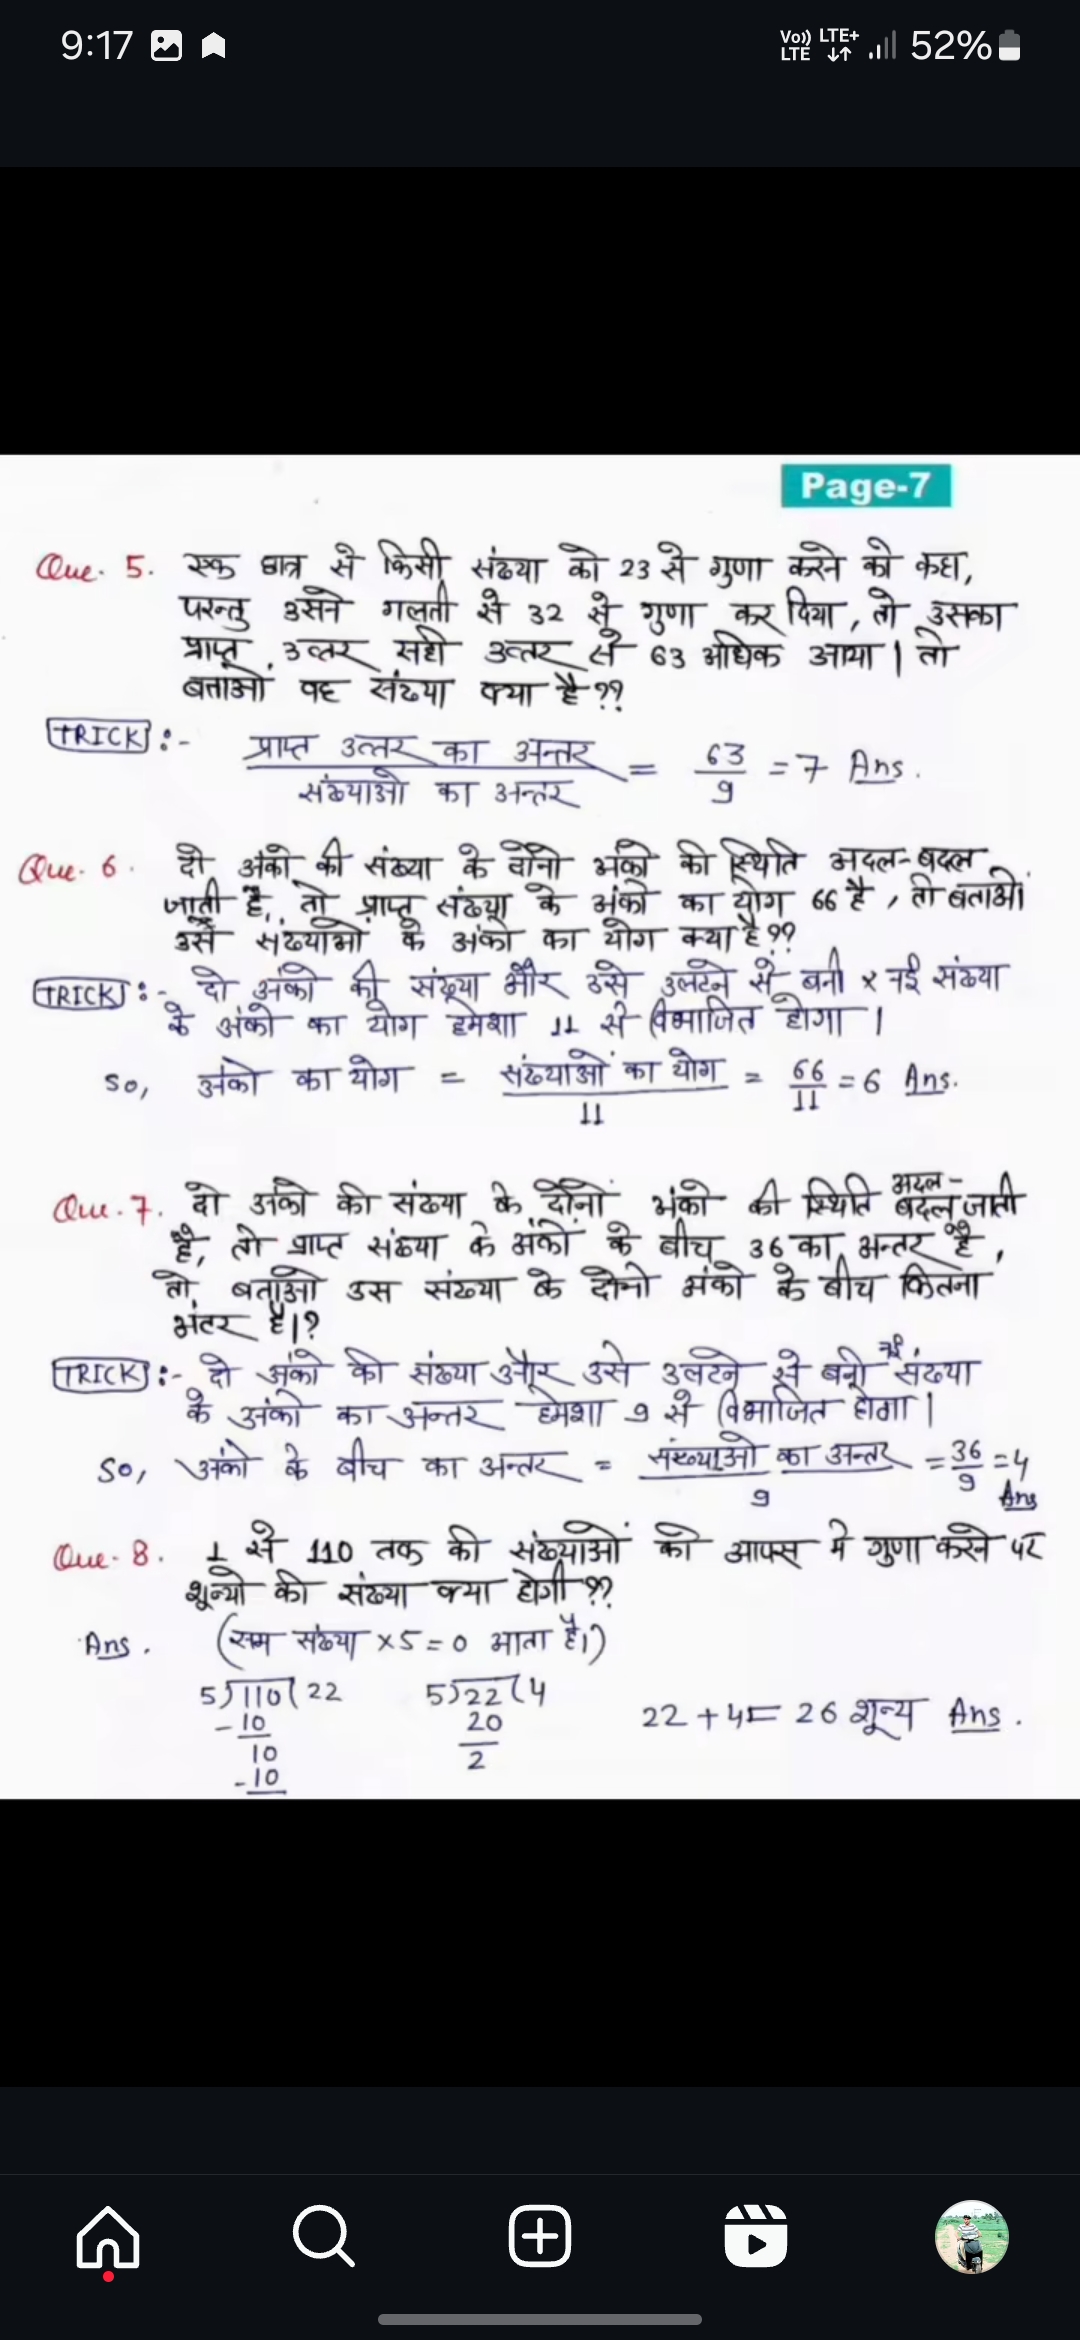 9:17
Vo)) LTE LTE+ 52%
Page-7
Que. 5. एक छात्र से किसी संख्या को 23 से गुणा करने को कहा,
परन्तु उसने गलती से 32 से गुणा कर दिया, तो उसका
प्राप्त उत्तर सही उत्तर से 63 अधिक आया। तो
बताओ वह संख्या क्या है??
TRICK :- प्राप्त उत्तर का अन्तर / संख्याओ का अन्तर = 63/9 = 7 Ans.
Que. 6. दो अंको की संख्या के दोनो अंको की स्थिति अदल-बदल
जाती है, तो प्राप्त संख्या के अंको का योग 66 है, तो बताओ
उस संख्याओ के अंको का योग क्या है??
TRICK :- दो अंको की संख्या और उसे उलटने से बनी x नई संख्या
के अंको का योग हमेशा 11 से विभाजित होगा।
So, अंको का योग = संख्याओं का योग / 11 = 66/11 = 6 Ans.
Que. 7. दो अंको की संख्या के दोनों अंको की स्थिति अदल-बदल जाती
है, तो प्राप्त संख्या के अंको के बीच 36 का अन्तर है,
तो बताओ उस संख्या के दोनो अंको के बीच कितना
अंतर है।?
TRICK :- दो अंको की संख्या और उसे उलटने से बनी नई संख्या
के अंको का अन्तर हमेशा 9 से विभाजित होगा।
So, अंको के बीच का अन्तर = संख्याओ का अन्तर / 9 = 36/9 = 4 Ans
Que. 8. 1 से 110 तक की संख्याओं को आपस मे गुणा करने पर
शून्यो की संख्या क्या होगी??
Ans. (सम संख्या x 5 = 0 आता है।)
5)110(22 5)22(4
-10 20
10 2
-10
22 + 4 = 26 शून्य Ans.